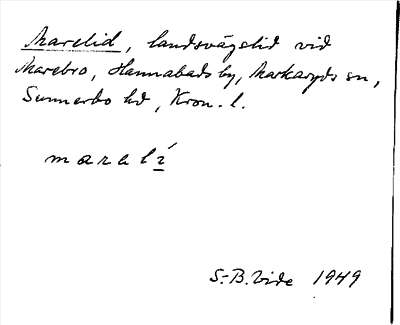 Marelid, landsvägslid vid
Marebro, Hannabads by, Markaryds sn,
Sunnerbo hd, Kron. l.
maralí
S.-B. Vide 1949